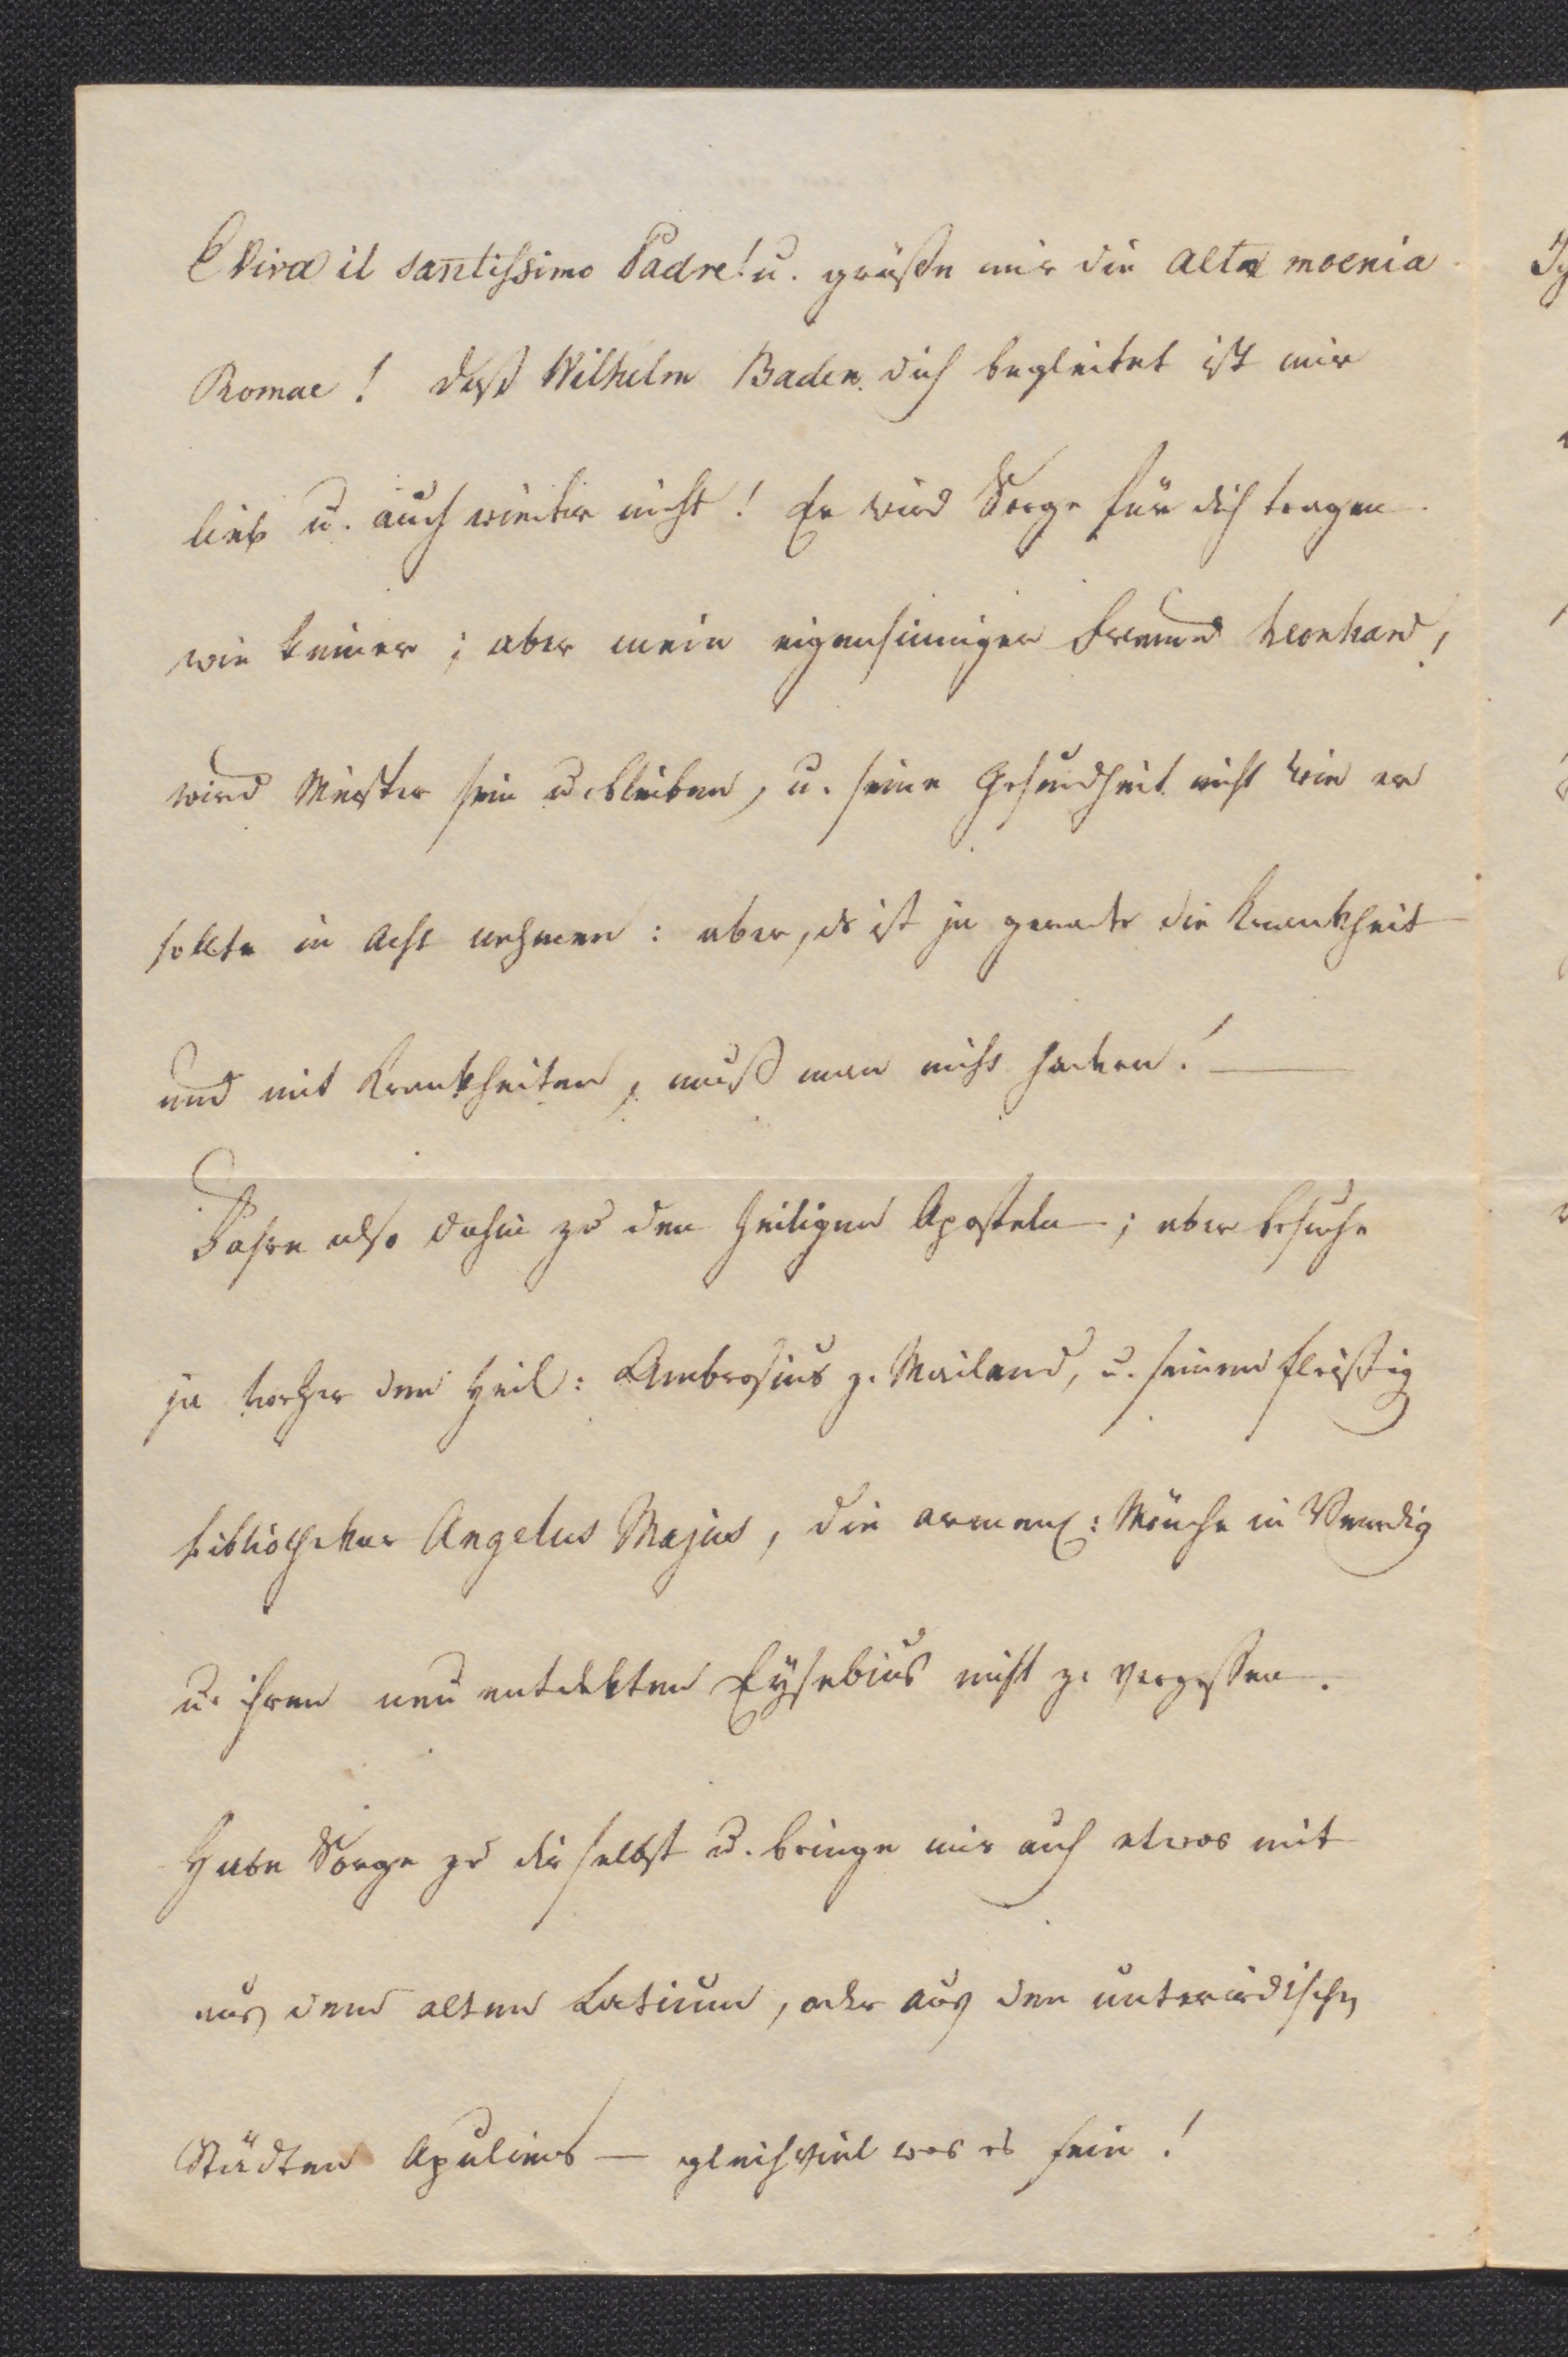 Evviva il santissimo Padre! u. grüße mir die alta moenia
Romae! daß Wilhelm Baden dich begleitet ist mir
lieb u. auch wieder nicht! Er wird Sorge für dich tragen
wie keiner; aber mein eigensinniger Freund Leonhard,
wird Meister sein u. bleiben, u. seine Gesundheit nicht wie er
sollte in Acht nehmen: aber, es ist ja gerade die Krankheit
und mit Krankheiten, muß man nicht hadern! —
Fahre also dahin zu den heiligen Aposteln; aber besuche
ja vorher den Heil: Ambrosius z. Mailand, u. seinen fleißig
bibliothekar Angelus Majus, die armen: Mönche in Venedig
u. ihren neu entdekten Eusebius nicht zu vergessen.
Habe Sorge zu dir selbst u. bringe mir auch etwas mit
aus dem alten Latium, oder aus den unterirdischen
Städten Apuliens — gleichviel was es sein!